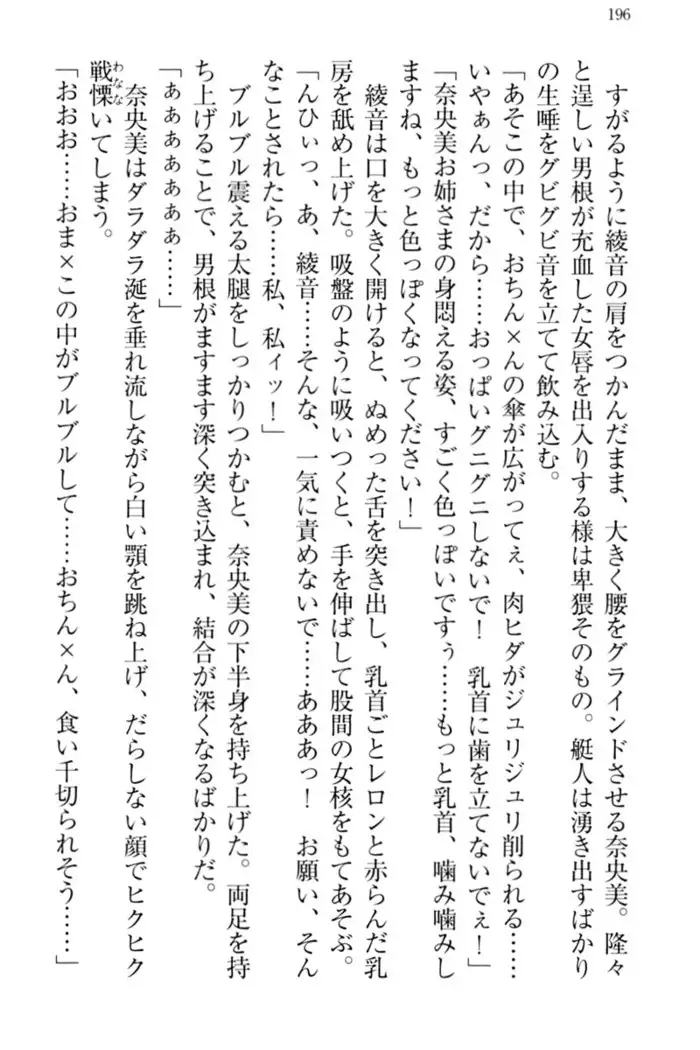 196
すがるように綾音の肩をつかんだまま、大きく腰をグラインドさせる奈央美。隆々
と逞しい男根が充血した女唇を出入りする様は卑猥そのもの。艇人は湧き出すばかり
の生唾をグビグビ音を立てて飲み込む。
「あそこの中で、おちん×んの傘が広がってぇ、肉ヒダがジュリジュリ削られる……
いやぁんっ、だから……おっぱいグニグニしないで！　乳首に歯を立てないでぇ！」
「奈央美お姉さまの身悶える姿、すごく色っぽいですぅ……もっと乳首、噛み噛みし
ますね、もっと色っぽくなってください！」
綾音は口を大きく開けると、ぬめった舌を突き出し、乳首ごとレロンと赤らんだ乳
房を舐め上げた。吸盤のように吸いつくと、手を伸ばして股間の女核をもてあそぶ。
「んひぃっ、あ、綾音……そんな、一気に責めないで……あああっ！　お願い、そん
なことされたら……私、私ィッ！」
ブルブル震える太腿をしっかりつかむと、奈央美の下半身を持ち上げた。両足を持
ち上げることで、男根がますます深く突き込まれ、結合が深くなるばかりだ。
「ぁぁぁぁぁぁぁ……」
奈央美はダラダラ涎を垂れ流しながら白い顎を跳ね上げ、だらしない顔でヒクヒク
戦慄いてしまう。
わなな
「おおお……おま×この中がブルブルして……おちん×ん、食い千切られそう……」